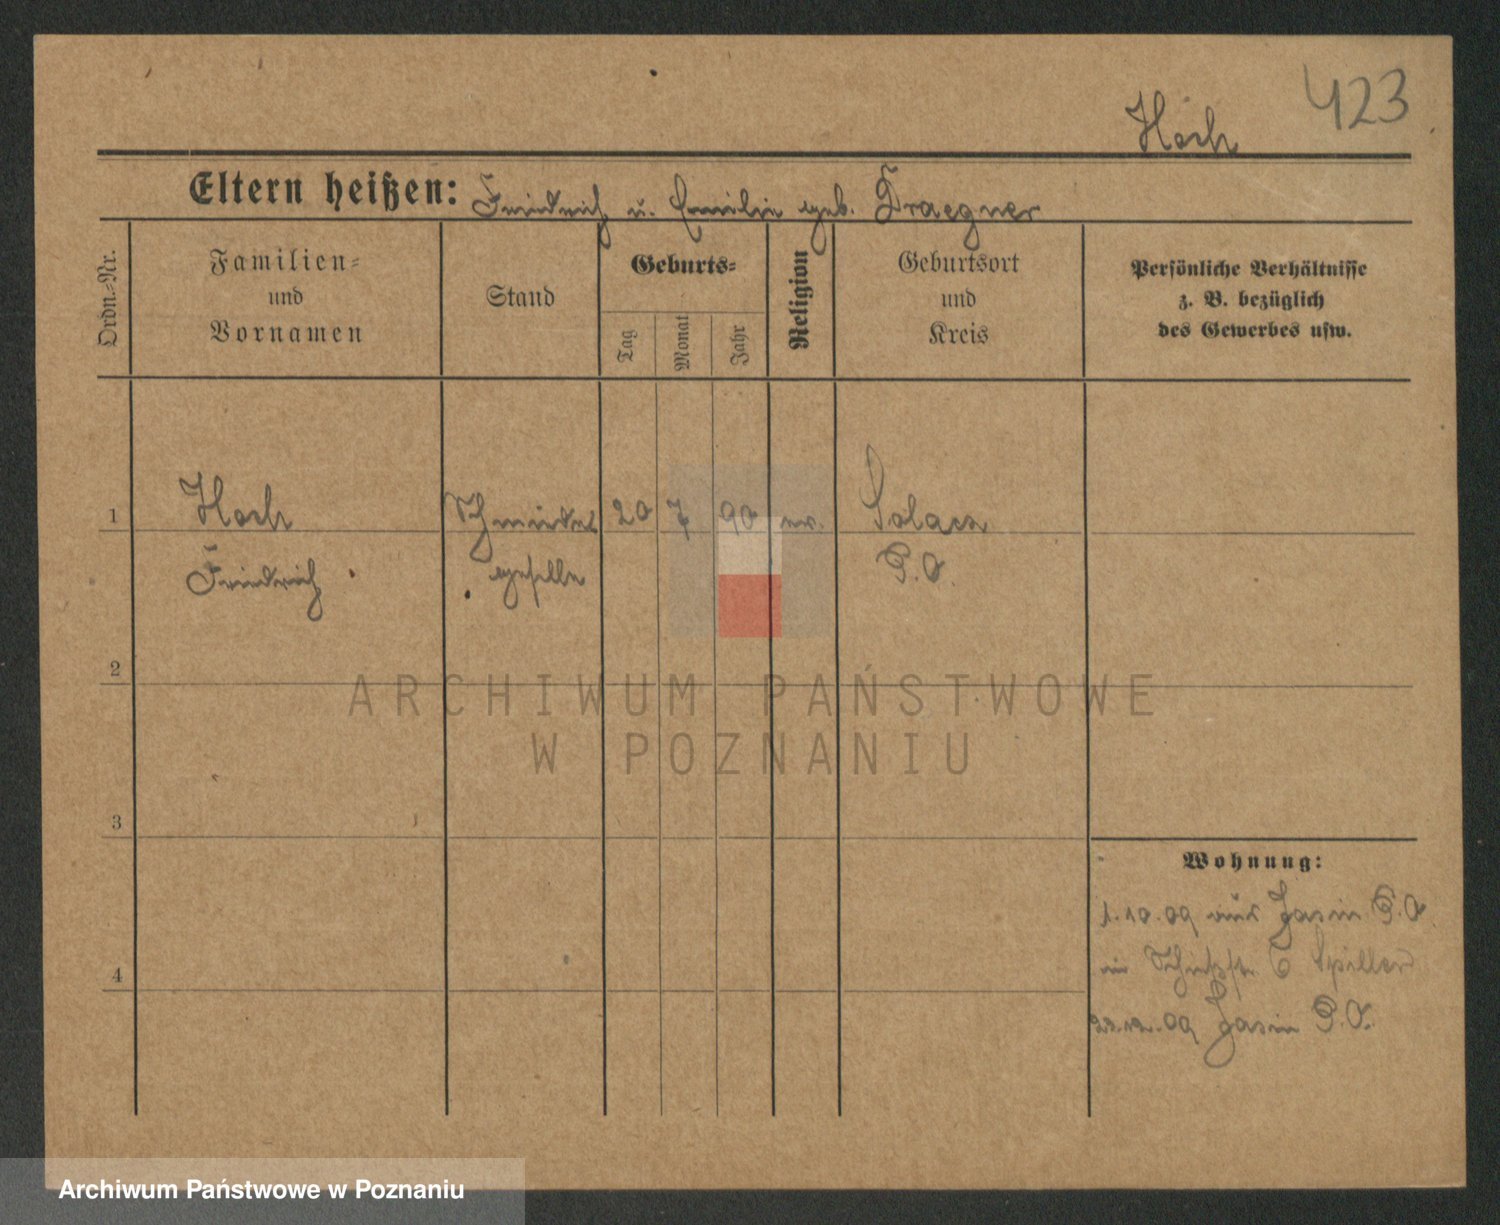 423
Hoch
Eltern heißen: Friedrich u. Emilie geb. Draegner
Ordn.-Nr.
Familien-
und
Vornamen
Stand
Geburts-
Tag
Monat
Jahr
Religion
Geburtsort
und
Kreis
Persönliche Verhältnisse
z. B. bezüglich
des Gewerbes usw.
1
Hoch
Schmiede
20
7
90
ev.
Solacz
Friedrich
geselle
P.O.
2
ARCHIWUM PAŃSTWOWE
W POZNANIU
3
Wohnung:
1.10.09 aus Jasin P.O
in Schießstr. 6 Spiller
4
22.12.09 Jasin P.O.
Archiwum Państwowe w Poznaniu